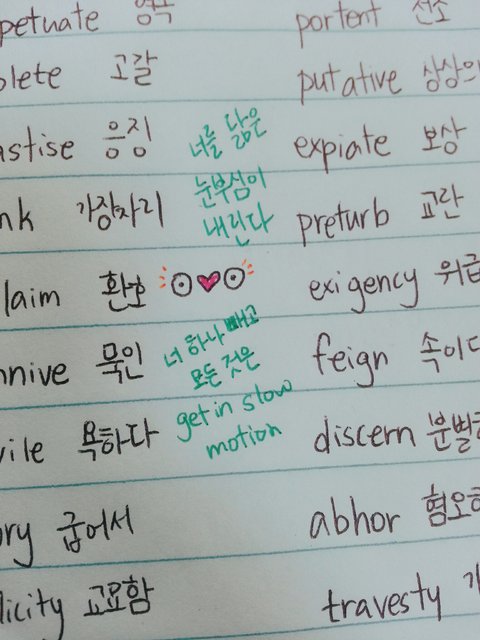 petuate 영속
portent 전조
plete 고갈
putative 상상의
astise 응징
너를 닮은
expiate 보상
nk 가장자리
눈부심이
내린다
preturb 교란
laim 환호
exigency 위급
nnive 묵인
너 하나 빼고
모든 것은
feign 속이다
vile 욕하다
get in slow
motion
discern 분별하
ory 굽어서
abhor 혐오하
licity 고요함
travesty